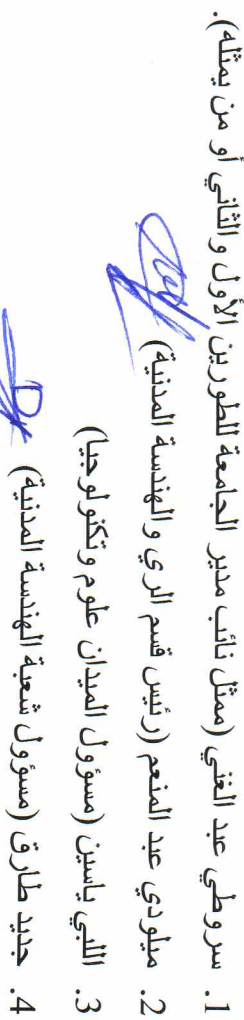 1. سروطي عبد الغني (ممثل نائب مدير الجامعة للطورين الأول والثاني أو من يمثله).
2. ميلودي عبد المنعم (رئيس قسم الري والهندسة المدنية)
3. اللبي ياسين (مسؤول الميدان علوم وتكنولوجيا)
4. جديد طارق (مسؤول شعبة الهندسة المدنية)